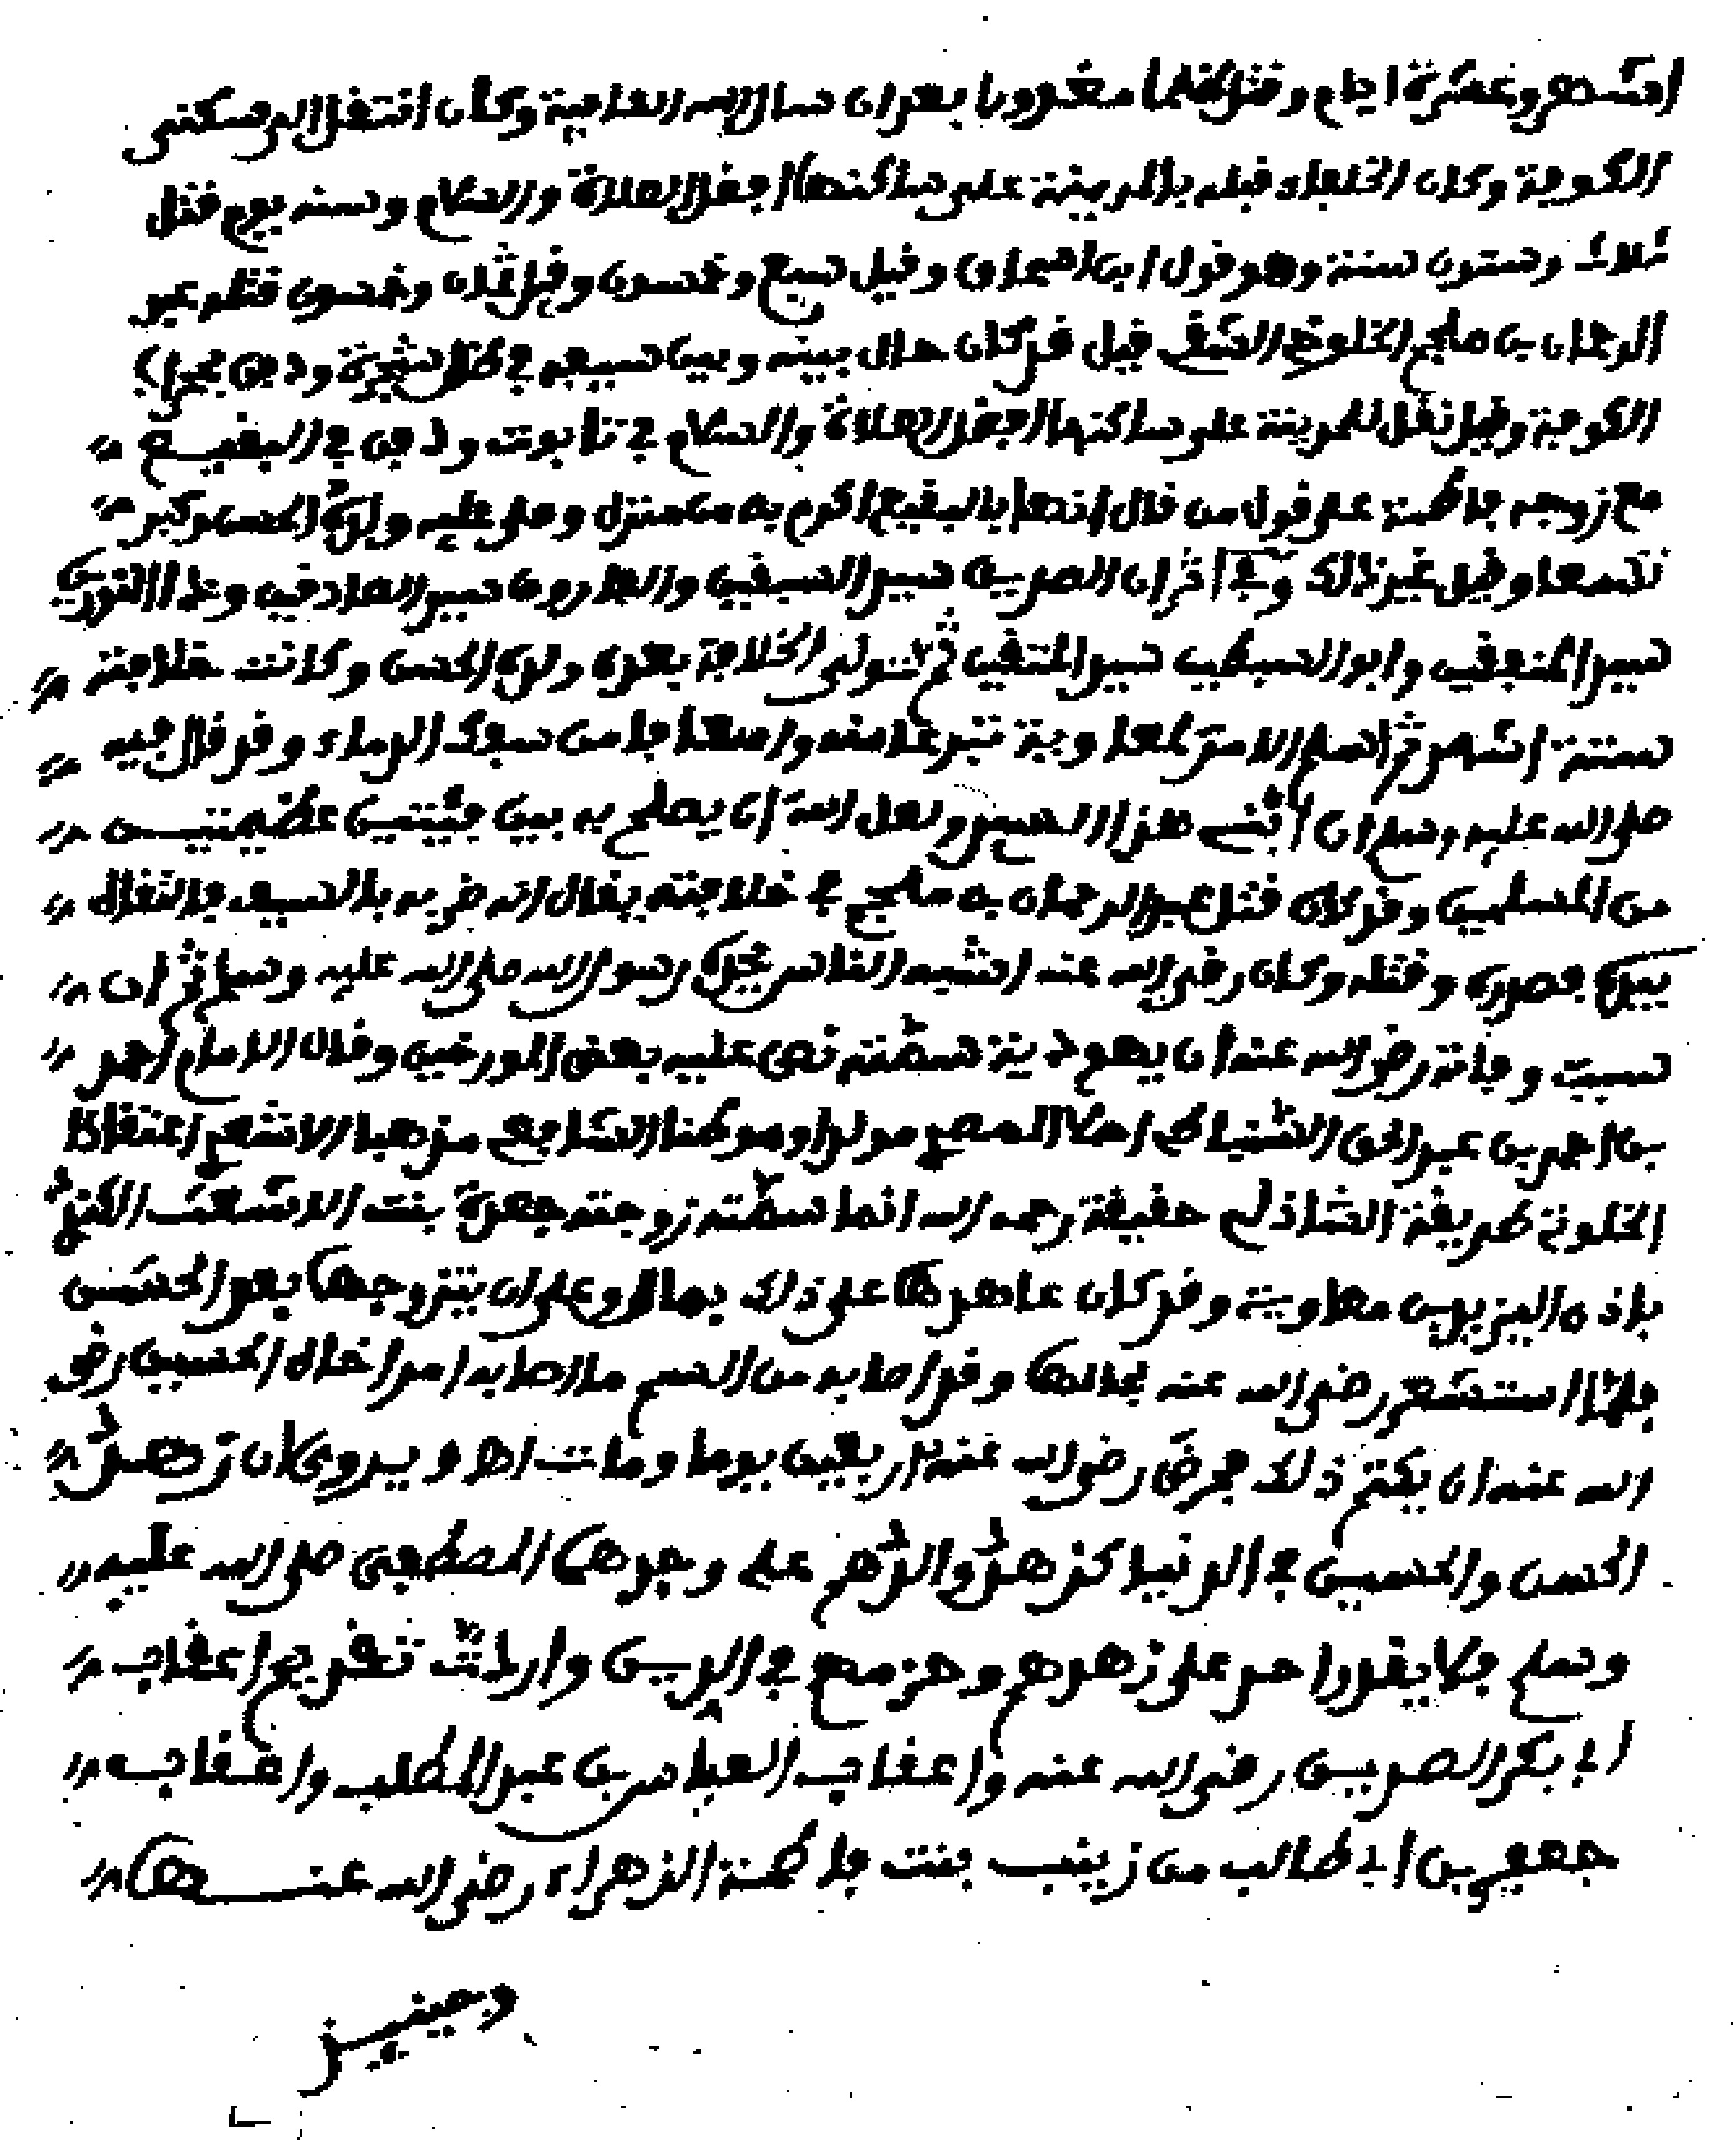 اشهر وعشرة ايام وقتل مغدورا بعد ان سال الله العافية وكان انتقل الى سكنى
الكوفة وكان الخلفاء قبله بالمدينة على ساكنها افضل الصلاة والسلام وسنه يوم قتل
ثلاث وستون سنة وهو قول ابن اسحاق وقيل سبع وخمسون وقيل ثمان وخمسون قتله عبد
الرحمان بن ملجم الشقي قيل قد كان حال بينه وبين سيفه في شجرة ودفن بمحراب
الكوفة وقيل نقل للمدينة على ساكنها افضل الصلاة والسلام في تابوت ودفن في البقيع
مع زوجه فاطمة على قول من قال انها بالبقيع اكرم به من منزل وصلى عليه ولده الحسن وكبر
تسعا وقيل غير ذلك وفي ان الصديق سيد السبقين والفاروق سيد الصادقين وذا النورين
سيد المنفقين وابو السبطين سيد المتقين ثم تولى الخلافة بعده ولده الحسن وكانت خلافته
ستة اشهر ثم اسلم الامر لمعاوية تبرعا منه واشفاقا من سفك الدماء وقد قال فيه
صلى الله عليه وسلم ان ابني هذا السيد ولعل الله ان يصلح به بين فئتين عظيمتين
من المسلمين وقد كان قتل عبد الرحمان بن ملجم في خلافته يقال انه ضربه بالسيف فالتقاه
بيده فصدره وقتله وكان رضي الله عنه اشبه الناس بجده رسول الله صلى الله عليه وسلم ثم ان
سبب وفاته رضي الله عنه ان يهوذية سمته نص عليه بعض المورخين وقال الامام احمد
بن احمد بن عبد الحق السنباطي اصلا المصري مولدا وموطنا الشافعي مذهبا الاشعري اعتقادا
الخلوتي طريقة الشاذلي حقيقة رحمه الله انما سمته زوجته جعدة بنت الاشعث الكندي
باذن اليزيد بن معاوية وقد كان عاهدها على ذلك بمال وعلى ان يتزوجها بعد الحسن
فلما استشعر رضي الله عنه بحالها وقد اصابه من السم ما اصابه امر اخاه الحسين رضي
الله عنه ان يكتم ذلك فمرض رضي الله عنه اربعين يوما ومات اهـ ويروى ان زهد
الحسن والحسين في الدنيا كزهد والدهم علي وجدهما المصطفى صلى الله عليه
وسلم فلا يقدر احد على زهدهم وحزمهم في الدين واردت تفريع اعقاب
ابي بكر الصديق رضي الله عنه واعقاب العباس بن عبد المطلب واعقاب
جعفر بن ابي طالب من زينب بنت فاطمة الزهراء رضي الله عنها